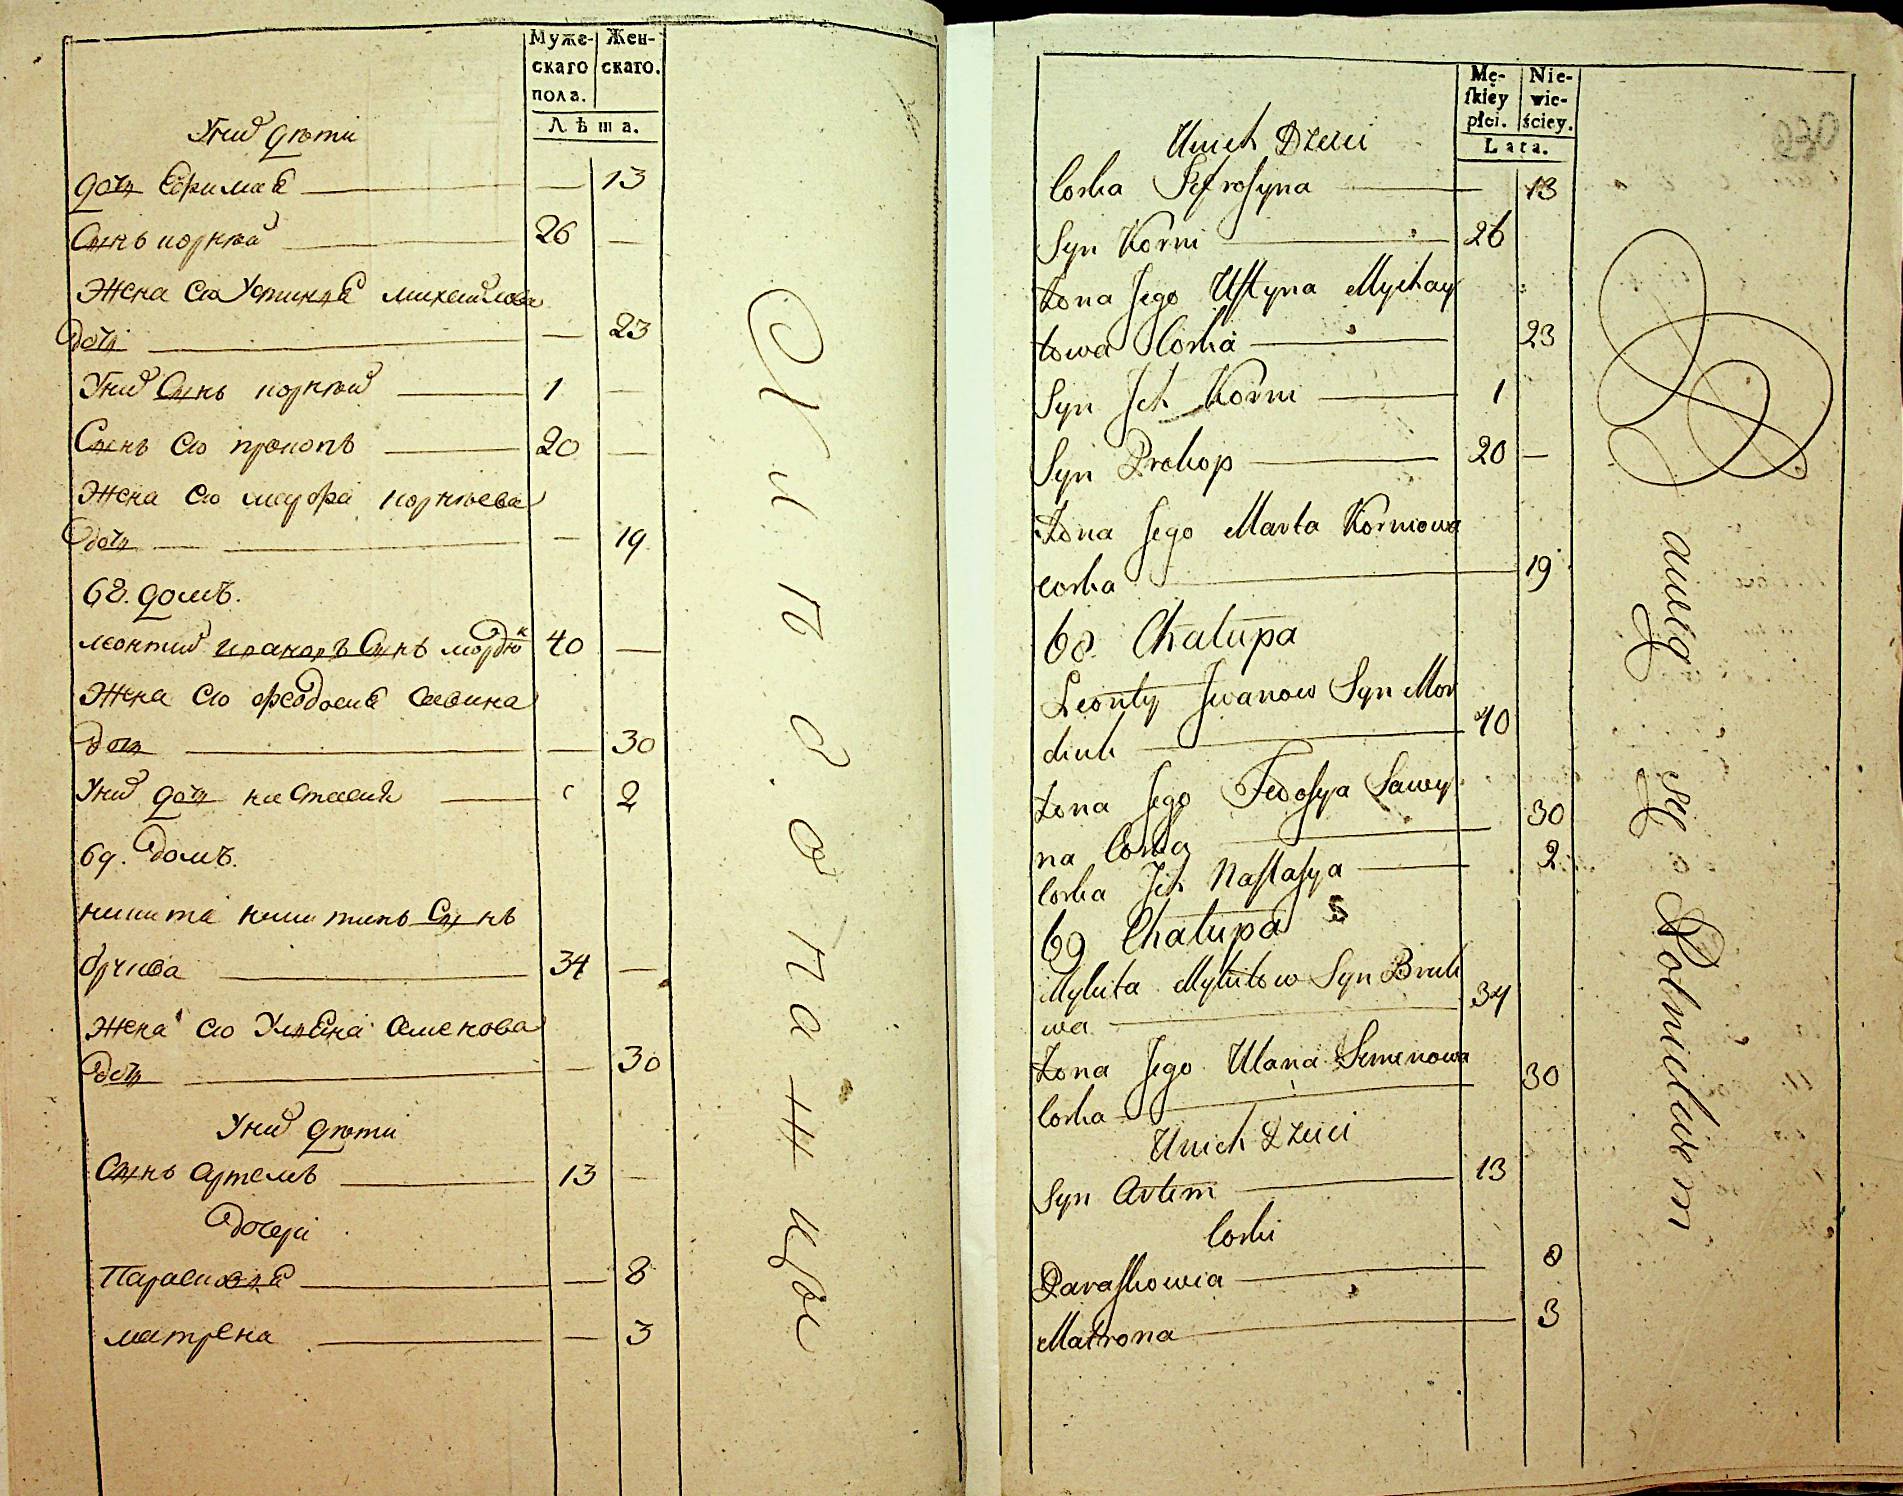 Муже-
скаго
пола.
Жен-
скаго.
Лѣта.
Униⷯ дѣти
дочь Ефимиѧ — 13
Сынъ корнѣй 26 —
Жена его Устинїѧ михайлова
дочь — 23
Униⷯ Сынъ корнѣй 1 —
Сынъ его прокопъ 20 —
Жена его марфа корнѣева
дочь — 19
68. домъ.
леонтий Iвановъ Сынъ мордюк 40 —
Жена его феодосиѧ савина
дочь — 30
Униⷯ дочь настасия 2
69. домъ.
никита никитинъ Сынъ
бручива 34 —
Жена его Улиѧна Семенова
дочь — 30
Униⷯ дѣти
Сынъ Артемъ 13 —
Дочери
Парасковиѧ — 8
матрена — 3
Mę-
ſkiey
płci.
Nie-
wie-
ściey.
Lata.
Unich Dzieci
Corka Jefroſyna 13
Syn Korni 26
Żona Jego Uſtyna Mychay
łowa Corka 23
Syn Ich Korni 1
Syn Prokop 20 —
Żona Jego Marta Korniowa
corka 19
68. Chałupa
Leonty Jwanow Syn Mor
diuk 40
Żona Jego Fedoſya Sawy
na Corka 30
Corka Ich Naſtaſya 2
69 Chałupa
Mykita Mykitow Syn Bruk
wa 34
Żona Jego Ulana Semenowa
Corka 30
Unich Dzieci
Syn Artem 13
Corki
Paraſkowia 8
Matrona 3
się Rolnictwem